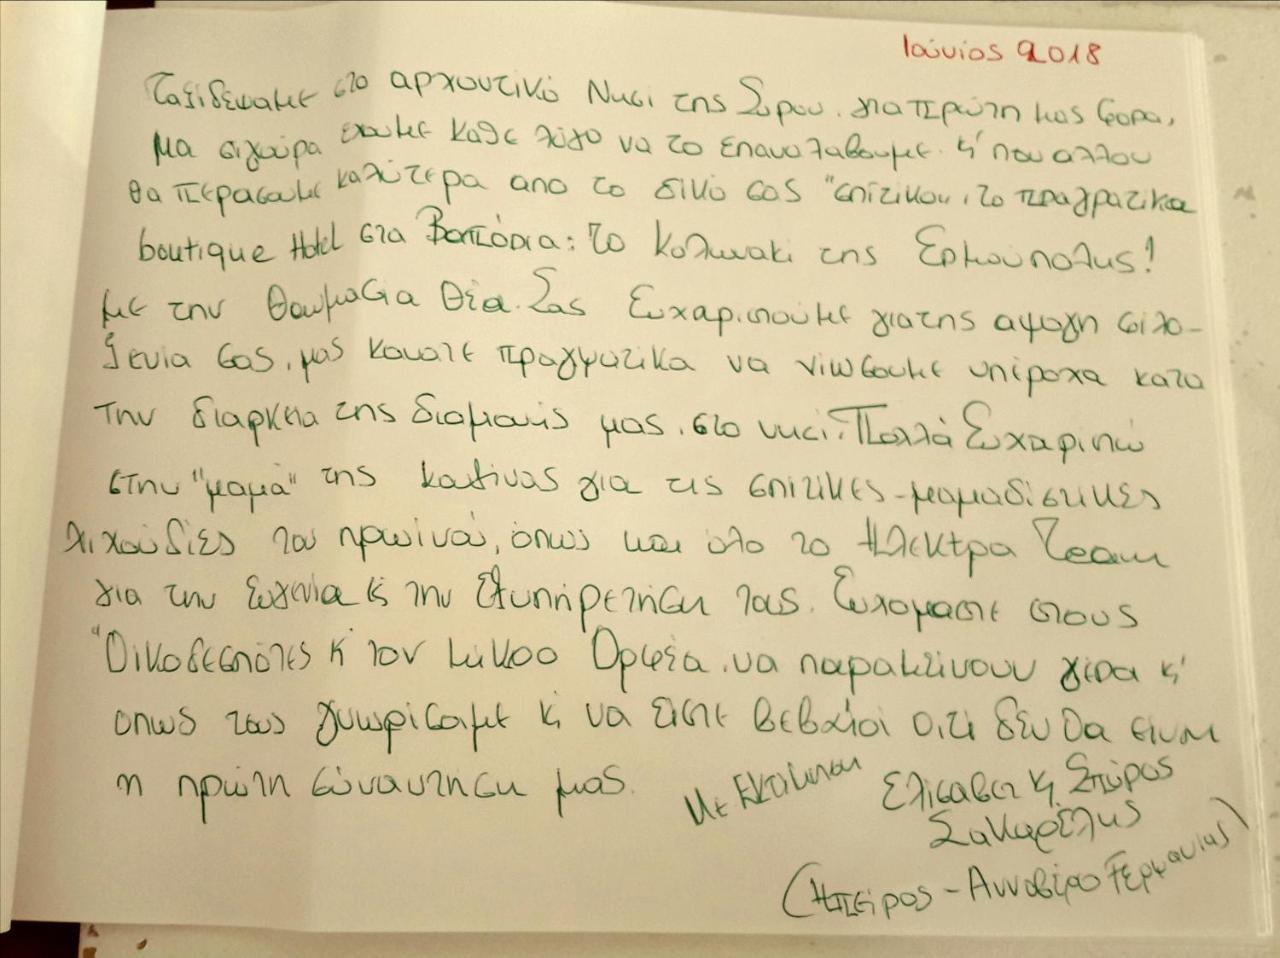 Ιούνιος 2018
Ταξιδεψαμε στο αρχοντικό Νησι της Σύρου. για πρώτη μας φορα,
μα σιγούρα εχουμε καθε λόγο να το επαναλαβουμε. κ' που αλλου
θα περασουμε καλύτερα απο το δικό σας "σπιτικου, το πραγματικα
boutique Hotel στα Βαπόρια: το κολωνακι της Ερμούπολης!
με την θαυμασια θέα. Σας Ευχαριστούμε για της αψογη φιλο-
ξενια σας, μας κανατε πραγματικα να νιωσουμε υπέροχα κατα
την διαρκεια της διαμονής μας, στο νησι. Πολλά Ευχαριστώ
στην "μαμά" της Κατινας για τις σπιτικες-μαμαδίστικες
λιχούδιες του πρωίνού, όπως και όλο το Ηλεκτρα Team
για την ευγενια κ την εξυπηρετηση τους. Ευχομαστε στους
"Οικοδεσπότες κ' τον μικρο Ορφέα, να παραμείνουν γερα κ'
οπως τους γνωρίσαμε κ να ειστε βεβαιοι οτι δεν θα ειναι
η πρώτη συναντηση μας.
Με Εκτιμηση
Ελισαβετ κ, Σπύρος
Σακαρέλης
(Ηπείρος - Αννοβέρο Γερμανιας)